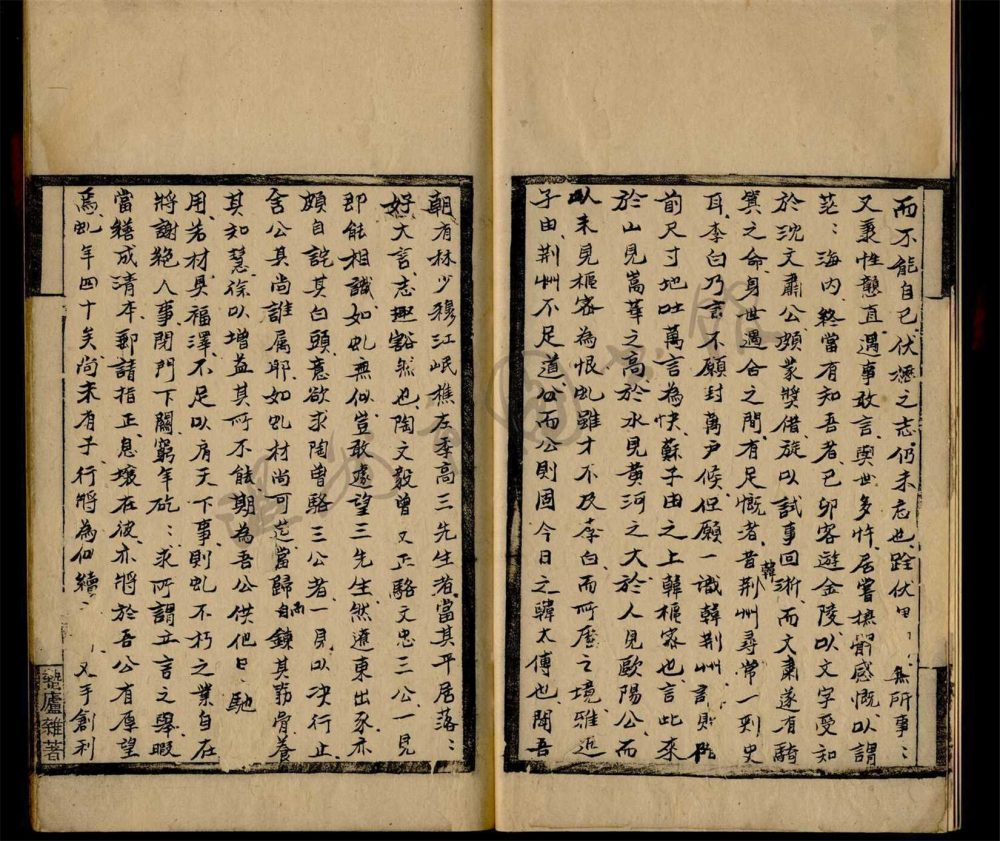 而不能自已伏櫪之志仍未忘也跧伏田々無所事々
又秉性戇直遇事敢言與世多忤居嘗撫髀感慨以謂
茫々海內終當有知吾者己卯客遊金陵以文字受知
於沈文肅公頗蒙獎借旋以試事回浙而文肅遂有騎
箕之命身世遇合之間有足慨者昔韓荊州尋常一刺史
耳李白乃言不願封萬戶侯但願一識韓荊州言則階
前尺寸地吐萬言為快蘇子由之上韓樞密也言此來
於山見嵩華之高於水見黃河之大於人見歐陽公而
以未見樞密為恨虬雖才不及李白而所處之境雅近
子由荊州不足道公而公則固今日之韓太傅也聞吾
朝有林少穆江岷樵左季高三先生者當其平居落々
好大言志趣豁然也陶文毅曾文正駱文忠三公一見
即能相識如虬無似豈敢遽望三先生然滙東出豕亦
頗自詫其白頭意欲求陶曾駱三公者一見以決行止
舍公其尚誰屬耶如虬材尚可造當歸而自鍊其筋骨養
其知慧徐以增益其所不能期為吾公供他日馳
用若材具福澤不足以肩天下事則虬不朽之業自在
將謝絕人事閉門下關窮年矻々求所謂立言之舉暇
當繕成清本郵請指正息壤在彼亦將於吾公有厚望
焉虬年四十矣尚未有子行將為似續 又手創利
蟄廬雜著